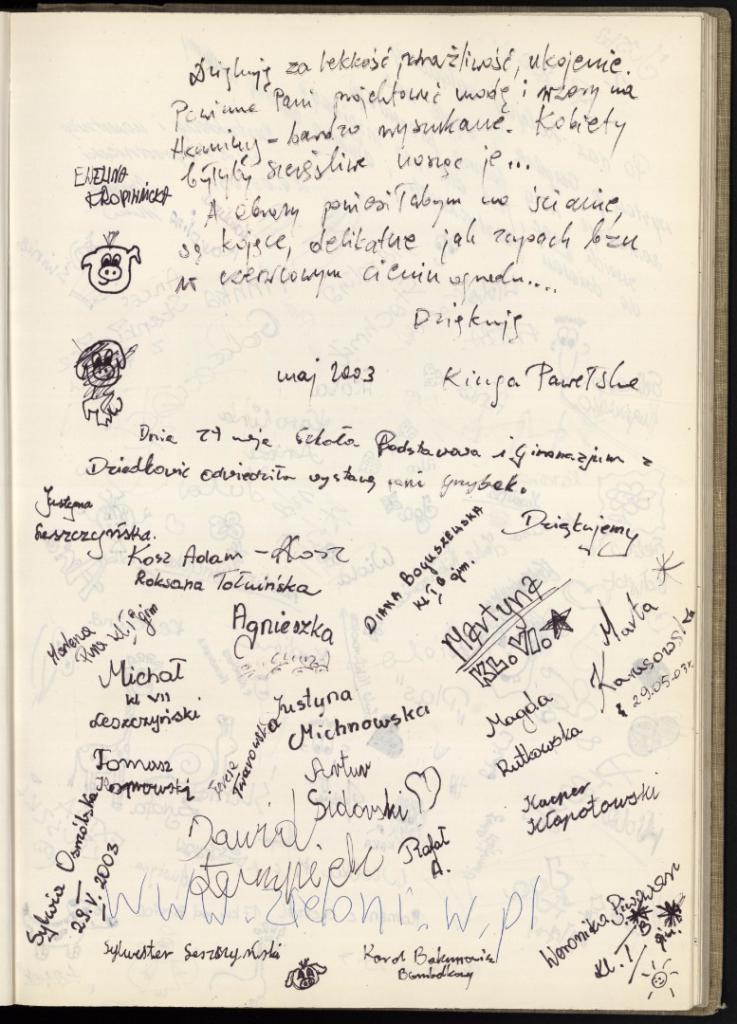 Dziękuję za lekkość, wrażliwość, ukojenie.
Powinna Pani projektować modę i wzory na
tkaniny – bardzo wyszukane. Kobiety
byłyby szczęśliwe nosząc je...
EWELINA
KROPIWNICKA
A obrazy powiesiłabym na ścianie,
są kojące, delikatne jak zapach bzu
w czerwcowym cieniu ogrodu....
Dziękuję
maj 2003 Kinga Pawełska
Dnia 29 maja Szkoła Podstawowa i Gimnazjum z
Dziadkowic odwiedziła wystawę pani Grzybek.
Dziękujemy
Justyna
Leszczyńska.
Kosz Adam – Kosz
Roksana Tołwińska
DIANA BOGUSZEWSKA
kl I B gim.
Agnieszka
Martyna
KL. VI.
Marta
Karasorosła
29.05.03r.
Marlena
kl I gim
Michał
kl VII
Leszczyński
Justyna
Michnowska
Twarowska
Magda
Rutkowska
Tomasz
Artur
Sidorski
Kacper
Kłopotowski
Dawid
Rafał
A.
Sylwia Osmólska
29.V.2003
www.zieloni.w.pl
Weronika
kl. I B gim.
Sylwester Leszczyński
Karol Bakunowicz